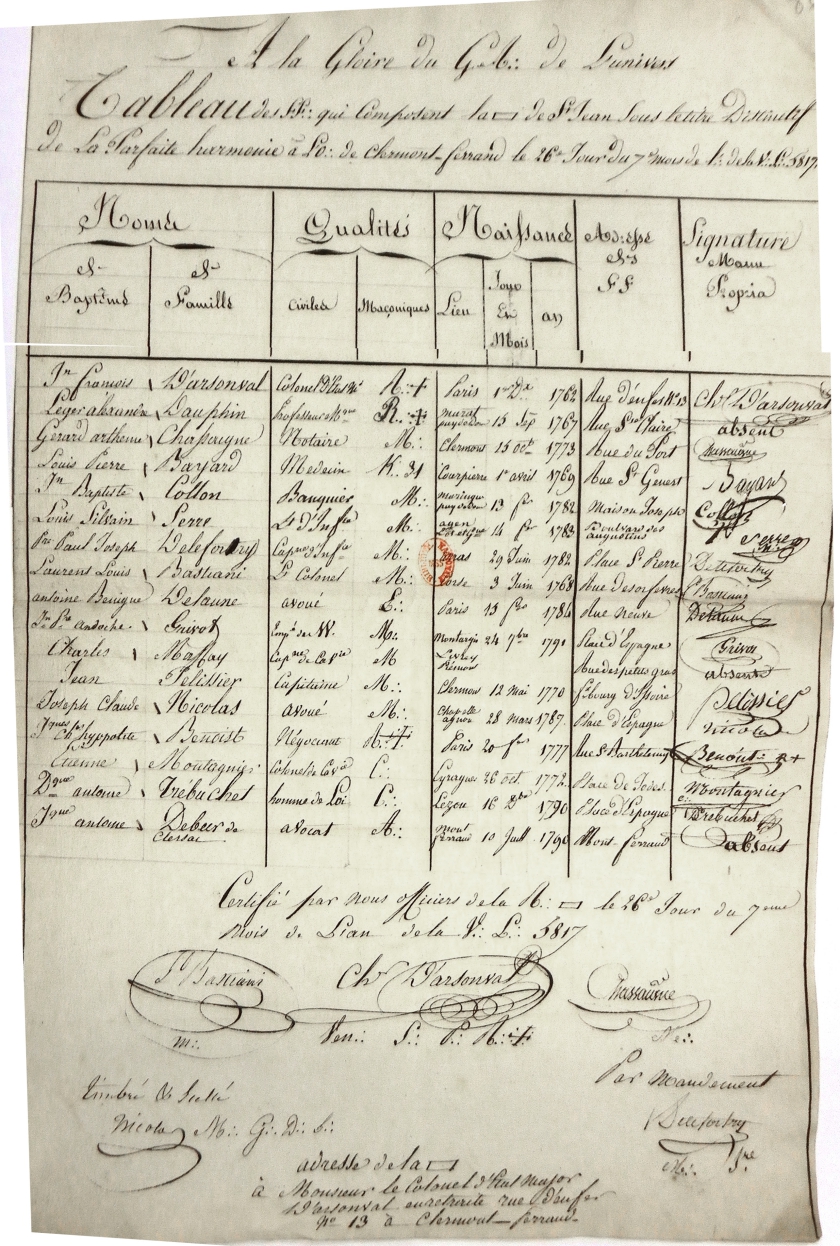 A la Gloire du G∴ A∴ de L'univers
Tableau des FF∴ qui Composent la ▭ de St Jean Sous le titre Distinctif
de La Parfaite harmonie à L'O∴ de Clermont-ferrand le 26e Jour du 7e mois de l' de la V∴ L∴ 5817.
Noms Qualités Naissance Adresse Signature
de Baptême de Famille Civiles Maçoniques Lieu Jour Et Mois an des FF Manu Propria
Jn francois D'arsonval Colonel d'Etat M. R∴ + Paris 1er Dx 1762 Rue d'enfer No 13 Chr D'arsonval
Leger alexandre Dauphin Professeur R∴ + murat puy de dome 15 Sep 1767 Rue Ste Claire absent
Gerard artheme Chassaigne Notaire M∴ Clermont 15 octe 1773 Rue du Port Chassaigne
Louis Pierre Bayard Medecin K. 31 Courpierre 1er avril 1769 Rue St Genest Bayard
Jn Baptiste Collon Banquier M∴ maringue puy de dome 13 fer 1782 Maison Joseph Collon
Louis Silvain Serre Lt d'Infie M∴ agen Lot et Gne 14 fer 1783 Boulvard des augustins Serre
Pre Paul Joseph Delefortry Capne d'Infie M∴ arras 29 Juin 1782 Place St Pierre Delefortry
Laurent Louis Bastiani Lt Colonel M∴ Corse 3 Juin 1768 Rue des orfevres Bastiani
antoine Benigne Delaune avoué E∴ Paris 15 fer 1784 Rue neuve Delaune
Jn Pre andoche Grivot Impr des VV. M∴ Montargis 24 7bre 1791 Place d'Espagne Grivot
Charles Maffay Capne de Cavie M Livry Rue des petits gras absent
Jean Pelissier Capitaine M∴ Clermon 12 mai 1770 f. bourg d'Issoire Pelissier
Joseph Claude Nicolas avoué M∴ Chapelle agnon 28 mars 1787. Place d'Espagne Nicolas
Jques Ch hypolite Benoist Négociant R∴ + Paris 20 fer 1777 Rue St Barthelemy Benoist∴ R+
Etienne Montagnier Colonel de Cavie C∴ Eyragues 26 oct 1772. Place de Jodes. Montagnier
Dque antoine Trebuchet homme de Loi C∴ Lezou 16 1790 Place d'Espagne Trebuchet
Jque antoine Debeer de avocat A∴ Mont ferrand 10 Juill 1790 Mont-ferrand absent
Certifié par nous officiers de la R∴ ▭ le 26e Jour du 7eme
Mois de L'an de la V∴ L∴ 5817
Lt Bastiani Chr D'arsonval Chassaigne
m∴ Ven∴ S∴ P∴ R∴ +
Par Mandement
Timbré & Scellé
Delefortry
Nicolas M∴ G∴ D∴ S∴
adresse de la ▭
à Monsieur le Colonel d'Etat major
D'arsonval en retraite rue d'enfer
No 13 à Clermont-ferrand